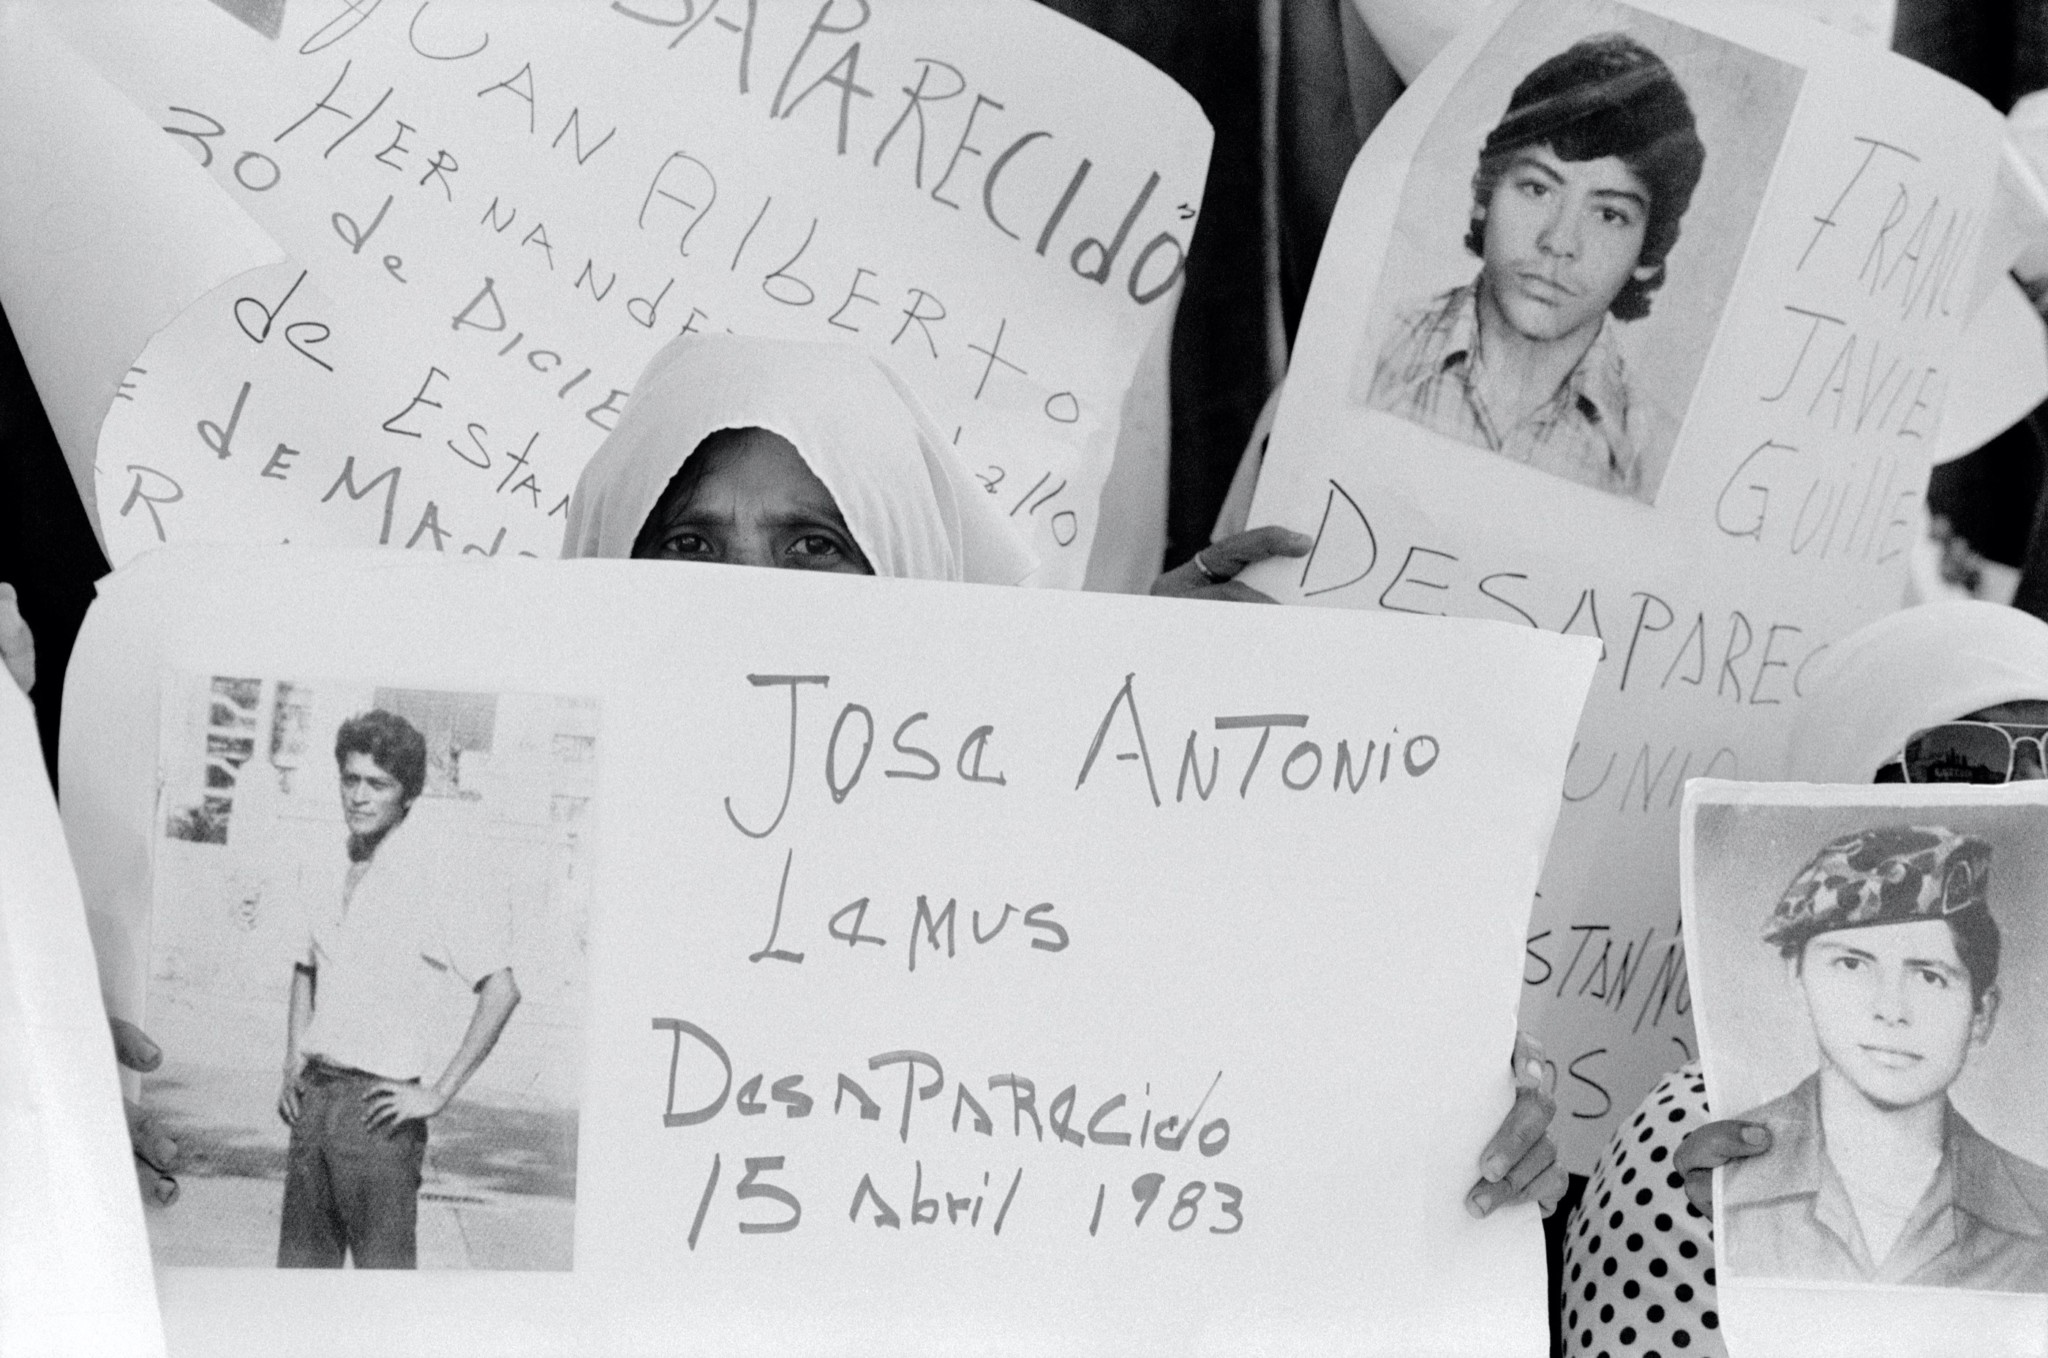 SAPARECIdO"
JUAN AlbERtO
HERNANdE
30 de DICIE
de Estan
dE MAd
E
R
allo
FRANC
JAVIE
GUillE
DESAPAREC
UNIO
STAN
OS
JOSe ANTONiO
LeMUS
DeSAPARecido
15 Abril 1983